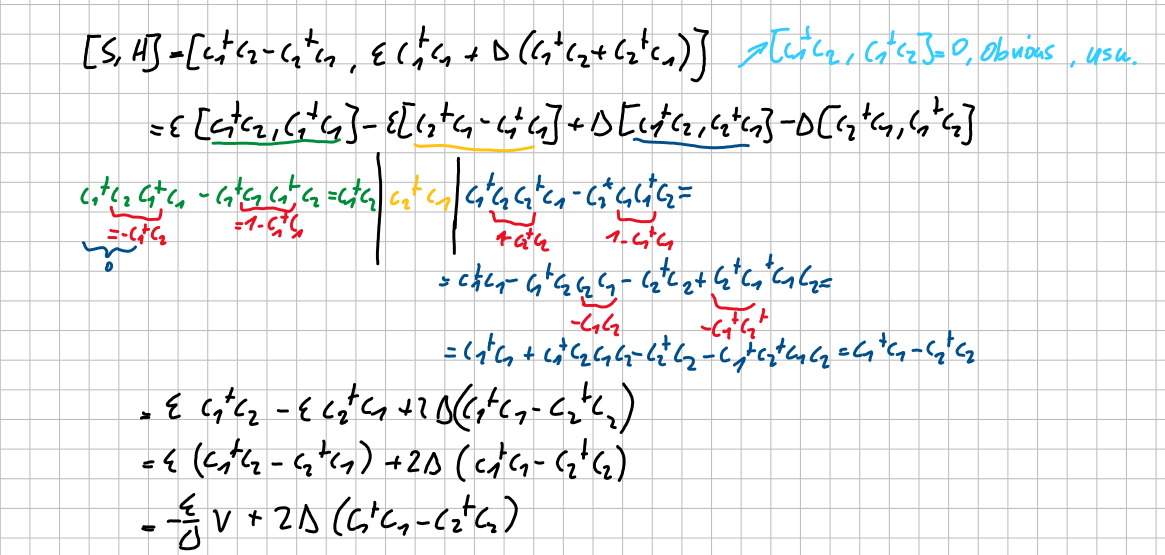 [S, H] = [c₁⁺c₂ - c₂⁺c₁, ε c₁⁺c₁ + Δ (c₁⁺c₂ + c₂⁺c₁)] ↗ [c₁⁺c₂, c₁⁺c₂] = 0, obvious, usw.
= ε [c₁⁺c₂, c₁⁺c₁] - ε[c₂⁺c₁ - c₁⁺c₁] + Δ [c₁⁺c₂, c₂⁺c₁] - Δ [c₂⁺c₁, c₁⁺c₂]
c₁⁺c₂ c₁⁺c₁ - c₁⁺c₁ c₁⁺c₂ = c₁⁺c₂ | c₂⁺c₁ | c₁⁺c₂c₂⁺c₁ - c₂⁺c₁c₁⁺c₂ =
= -c₁⁺c₂ = 1 - c₁⁺c₁ 1-c₂⁺c₂ 1 - c₁⁺c₁
0
= c₁⁺c₁ - c₁⁺c₂⁺c₂c₁ - c₂⁺c₂ + c₂⁺c₁⁺c₁c₂ =
-c₁c₂ -c₁⁺c₂⁺
= c₁⁺c₁ + c₁⁺c₂c₁c₂ - c₂⁺c₂ - c₁⁺c₂⁺c₁c₂ = c₁⁺c₁ - c₂⁺c₂
= ε c₁⁺c₂ - ε c₂⁺c₁ + 2Δ(c₁⁺c₁ - c₂⁺c₂)
= ε (c₁⁺c₂ - c₂⁺c₁) + 2Δ (c₁⁺c₁ - c₂⁺c₂)
= -ε/Δ V + 2Δ (c₁⁺c₁ - c₂⁺c₂)